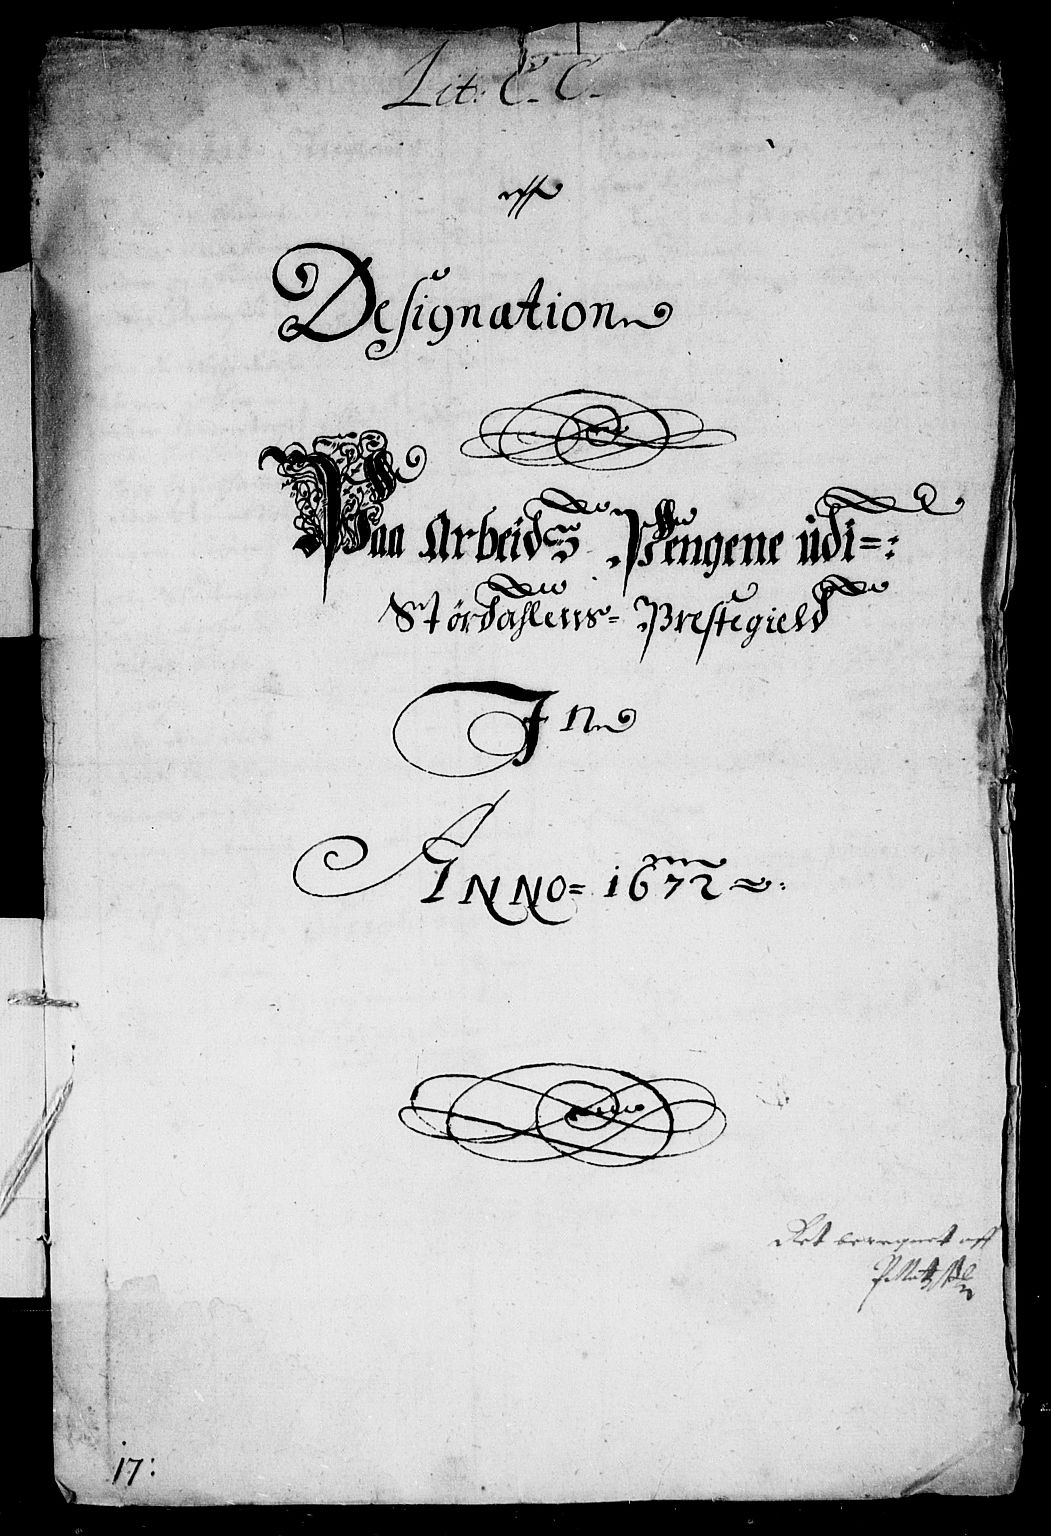 Lit: C. C.
Designation
Paa Arbeids Pengene üdi=:
Størdahlens= Prestegield
In
ANNO= 1672
Ret beregnet aff
17: